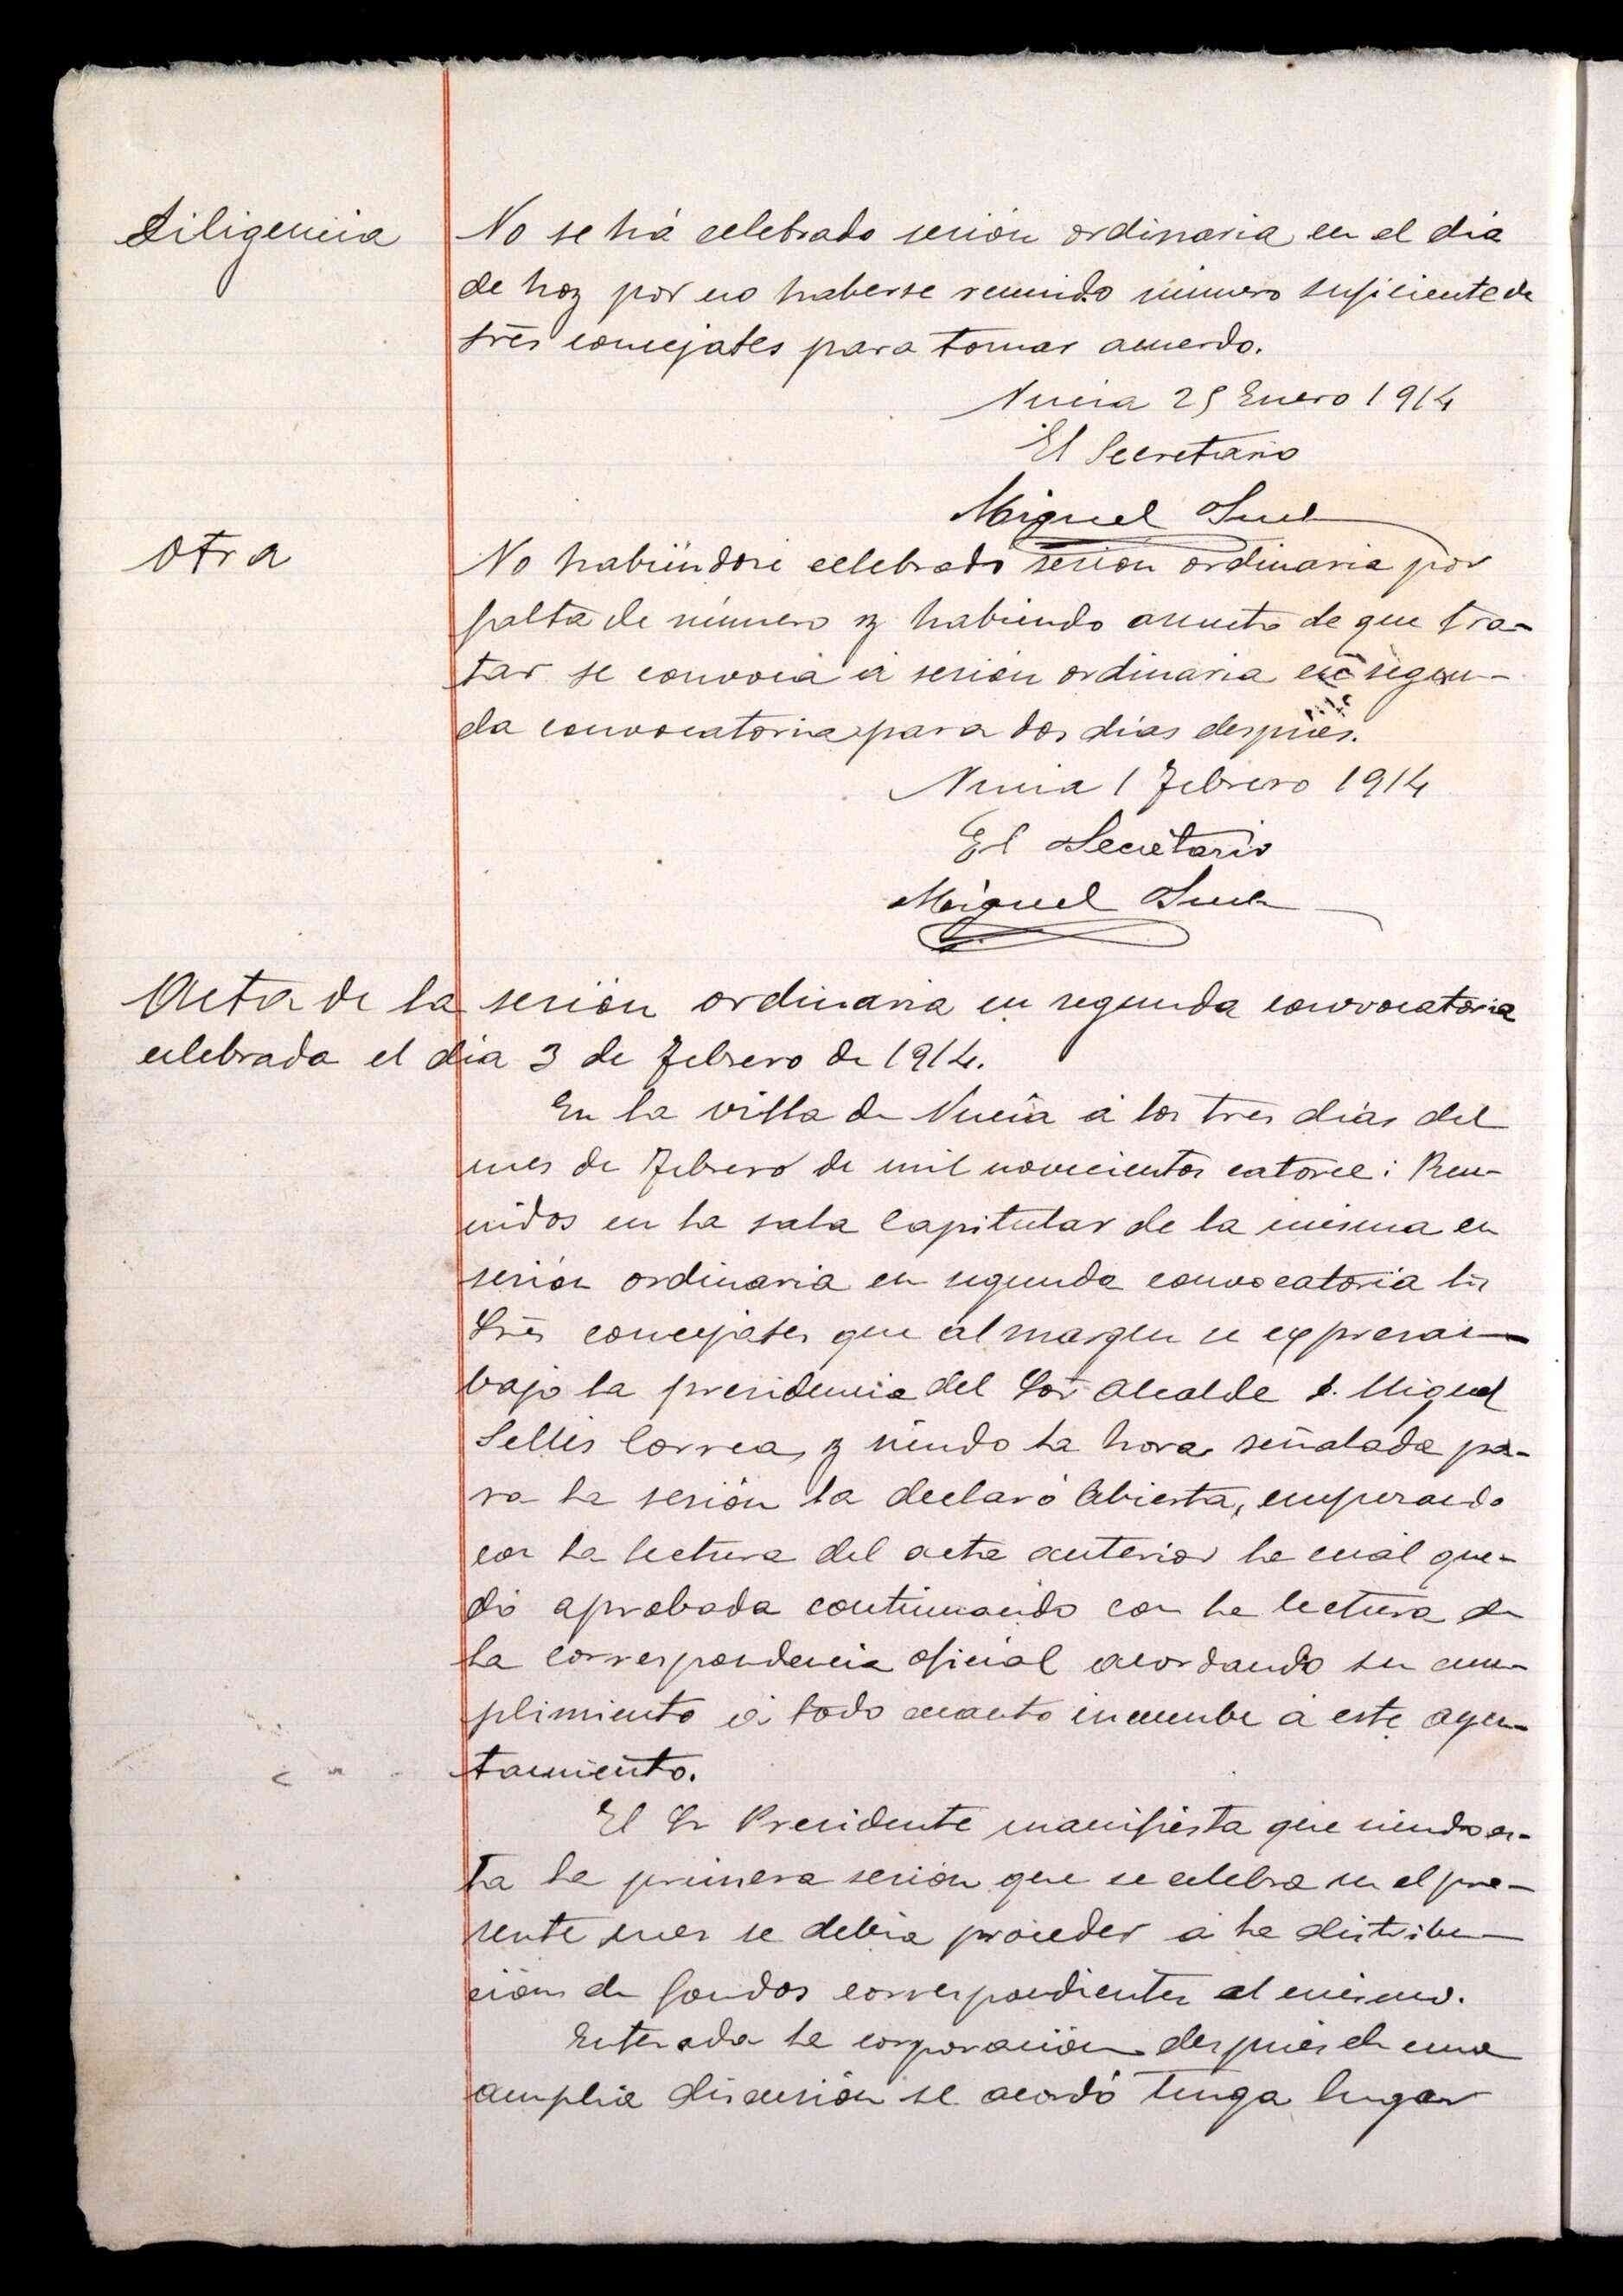 Diligencia
No se há celebrado sesión ordinaria en el dia
de hoy por no haberse reunido número suficiente de
Srēs concejales para tomar acuerdo.
Nucia 25 Enero 1914
El Secretario
Miguel
Otra
No habiéndose celebrado sesión ordinaria por
falta de número y habiendo asunto de que tra-
tar se convoca á sesión ordinaria en segun-
da convocatoria para dos días después.
Nucia 1 Febrero 1914
El Secretario
Miguel
Acta de la sesión ordinaria en segunda convocatoria
celebrada el dia 3 de Febrero de 1914.
En la villa de Nucia á los tres días del
mes de Febrero de mil novecientos catorce: Reu-
nidos en la sala Capitular de la misma en
sesión ordinaria en segunda convocatoria los
Srēs concejales que al margen se expresan
bajo la presidencia del Sor Alcalde D. Miguel
Sellés Correa, y siendo la hora señalada pa-
ra la sesión la declaró abierta, empezando
con la lectura del acta anterior la cual que-
dó aprobada continuando con la lectura de
la correspondencia oficial acordando su cum-
plimiento á todo cuanto incumbe á este ayun-
tamiento.
El Sr Presidente manifiesta que siendo es-
ta la primera sesión que se celebra en el pre-
sente mes se debia proceder á la distribu-
ción de fondos correspondientes al mismo.
Enterada la corporación después de una
amplia discusión se acordó tenga lugar